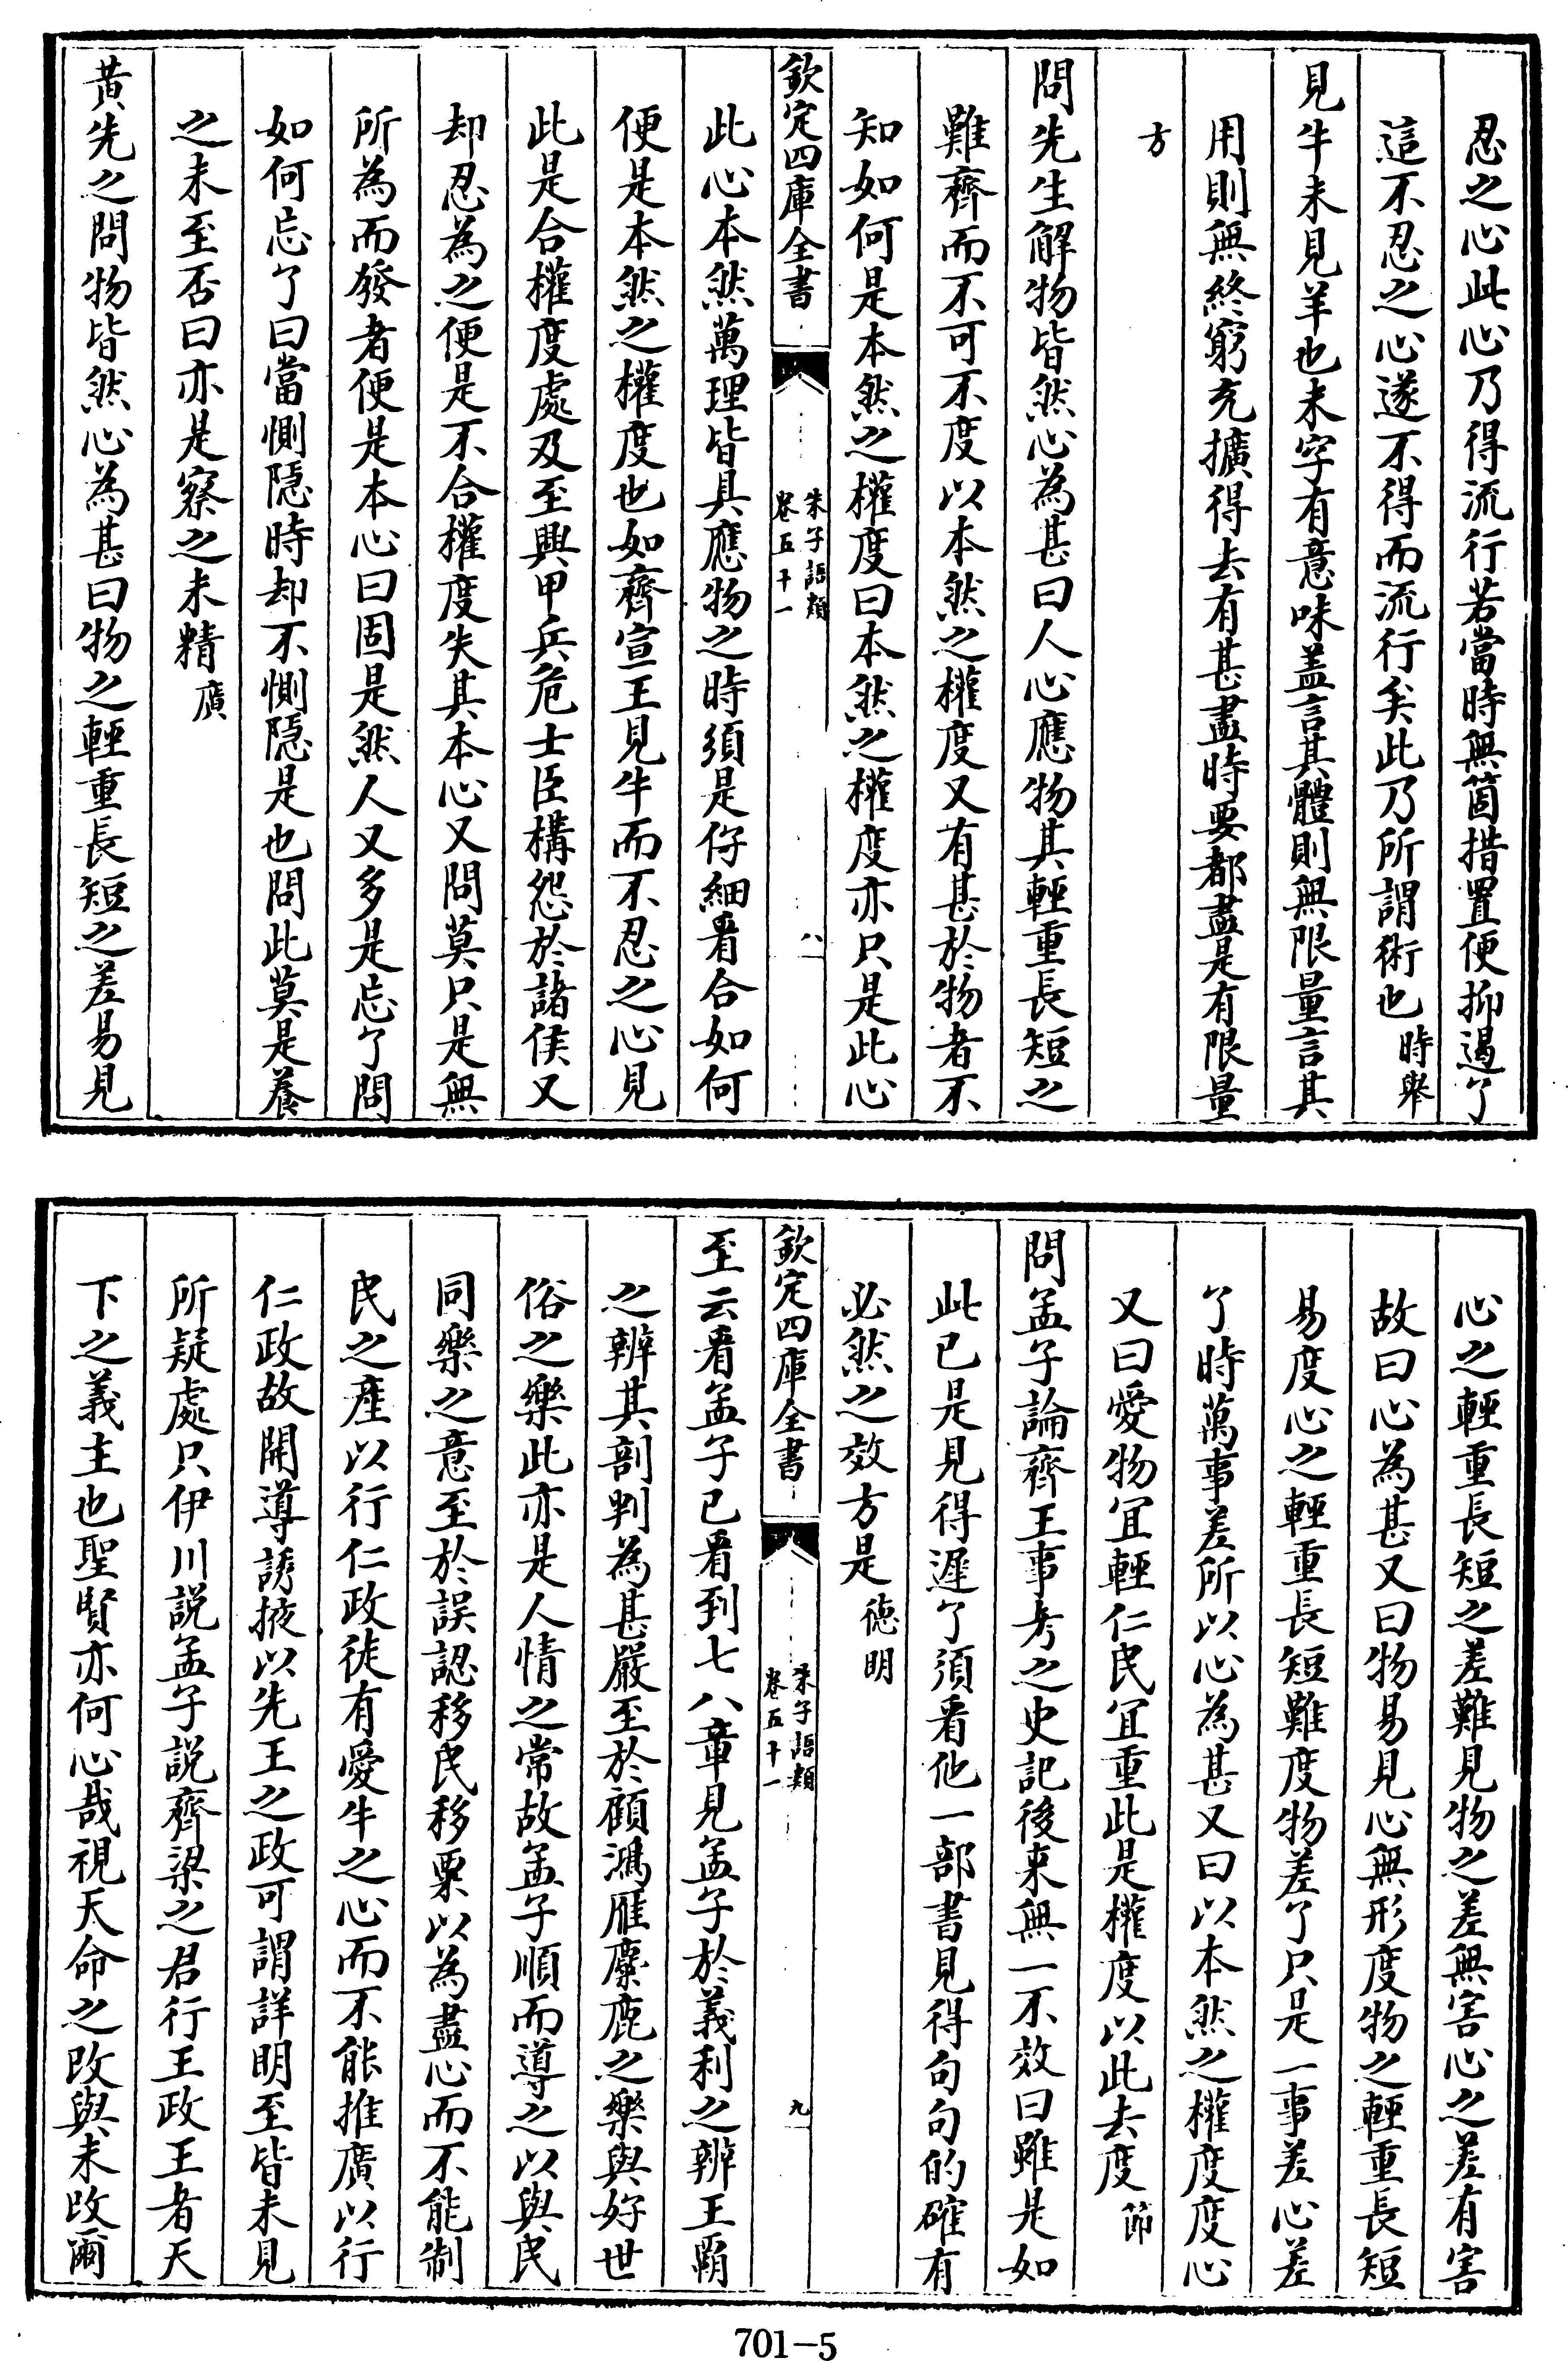 忍之心此心乃得流行若當時無箇措置便抑遏了
這不忍之心遂不得而流行矣此乃所謂術也時舉
見牛未見羊也未字有意味盖言其體則無限量言其
用則無終窮充擴得去有甚盡時要都盡是有限量
方
問先生解物皆然心為甚曰人心應物其輕重長短之
難齊而不可不度以本然之權度又有甚於物者不
知如何是本然之權度曰本然之權度亦只是此心
欽定四庫全書
朱子語類
卷五十一
八
此心本然萬理皆具應物之時須是仔細看合如何
便是本然之權度也如齊宣王見牛而不忍之心見
此是合權度處及至興甲兵危士臣構怨於諸侯又
却忍為之便是不合權度失其本心又問莫只是無
所為而發者便是本心曰固是然人又多是忘了問
如何忘了曰當惻隠時却不惻隠是也問此莫是養
之未至否曰亦是察之未精廣
黄先之問物皆然心為甚曰物之輕重長短之差易見
心之輕重長短之差難見物之差無害心之差有害
故曰心為甚又曰物易見心無形度物之輕重長短
易度心之輕重長短難度物差了只是一事差心差
了時萬事差所以心為甚又曰以本然之權度度心
又曰愛物宜輕仁民宜重此是權度以此去度節
問孟子論齊王事考之史記後来無一不效曰雖是如
此已是見得遲了須看他一部書見得句句的確有
必然之效方是徳明
欽定四庫全書
朱子語類
卷五十一
九
至云看孟子已看到七八章見孟子於義利之辨王霸
之辨其剖判為甚嚴至於顧鴻雁麋鹿之樂與好世
俗之樂此亦是人情之常故孟子順而導之以與民
同樂之意至於誤認移民移粟以為盡心而不能制
民之産以行仁政徒有愛牛之心而不能推廣以行
仁政故開導誘掖以先王之政可謂詳明至皆未見
所疑處只伊川説孟子説齊梁之君行王政王者天
下之義主也聖賢亦何心哉視天命之改與未改爾
701—5